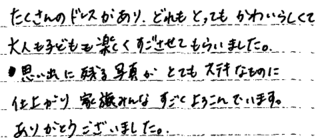 たくさんのドレスがあり、どれもとってもかわいらしくて
大人も子どもも楽しくすごさせてもらいました。
思い出に残る写真がとてもステキなものに
仕上がり家族みんなすごくよろこんでいます。
ありがとうございました。